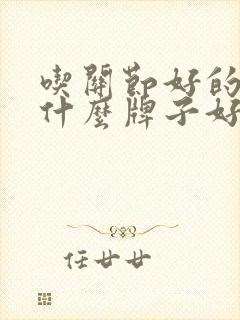 喫關節好的
什麼牌子好
任廿廿